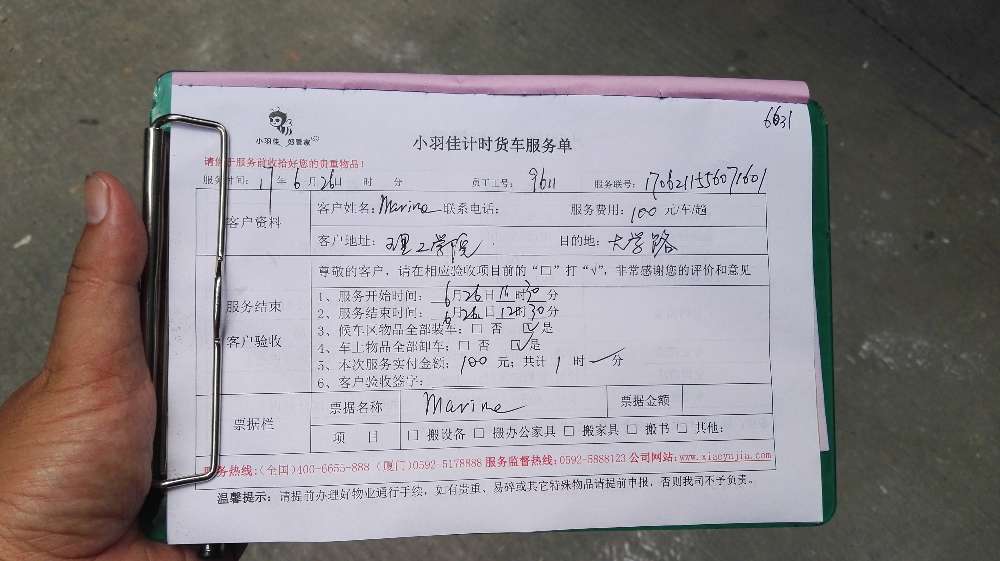 6631
小羽佳 好管家
小羽佳计时货车服务单
请您于服务前收给好您的贵重物品！
服务时间：17年6月26日 时 分 员工工号：9611 服务联号：1706211556071601
客户资料 客户姓名：Marina 联系电话： 服务费用：100 元/车/趟
客户地址：理工学院 目的地：大学路
尊敬的客户，请在相应验收项目前的“□”打“√”，非常感谢您的评价和意见
服务结束
客户验收
1、服务开始时间：6月26日11时30分
2、服务结束时间：6月26日12时30分
3、候车区物品全部装车：□ 否 ☑ 是
4、车上物品全部卸车：□ 否 ☑ 是
5、本次服务实付金额：100 元；共计 1 时 — 分
6、客户验收签字：
票据栏 票据名称 Marina 票据金额
项 目 □ 搬设备 □ 搬办公家具 □ 搬家具 □ 搬书 □ 其他：
服务热线：(全国)400-6655-888 (厦门)0592-5178888 服务监督热线：0592-5888123 公司网站：www.xiaoyujia.com
温馨提示：请提前办理好物业通行手续，如有贵重、易碎或其它特殊物品请提前申报，否则我司不予负责。